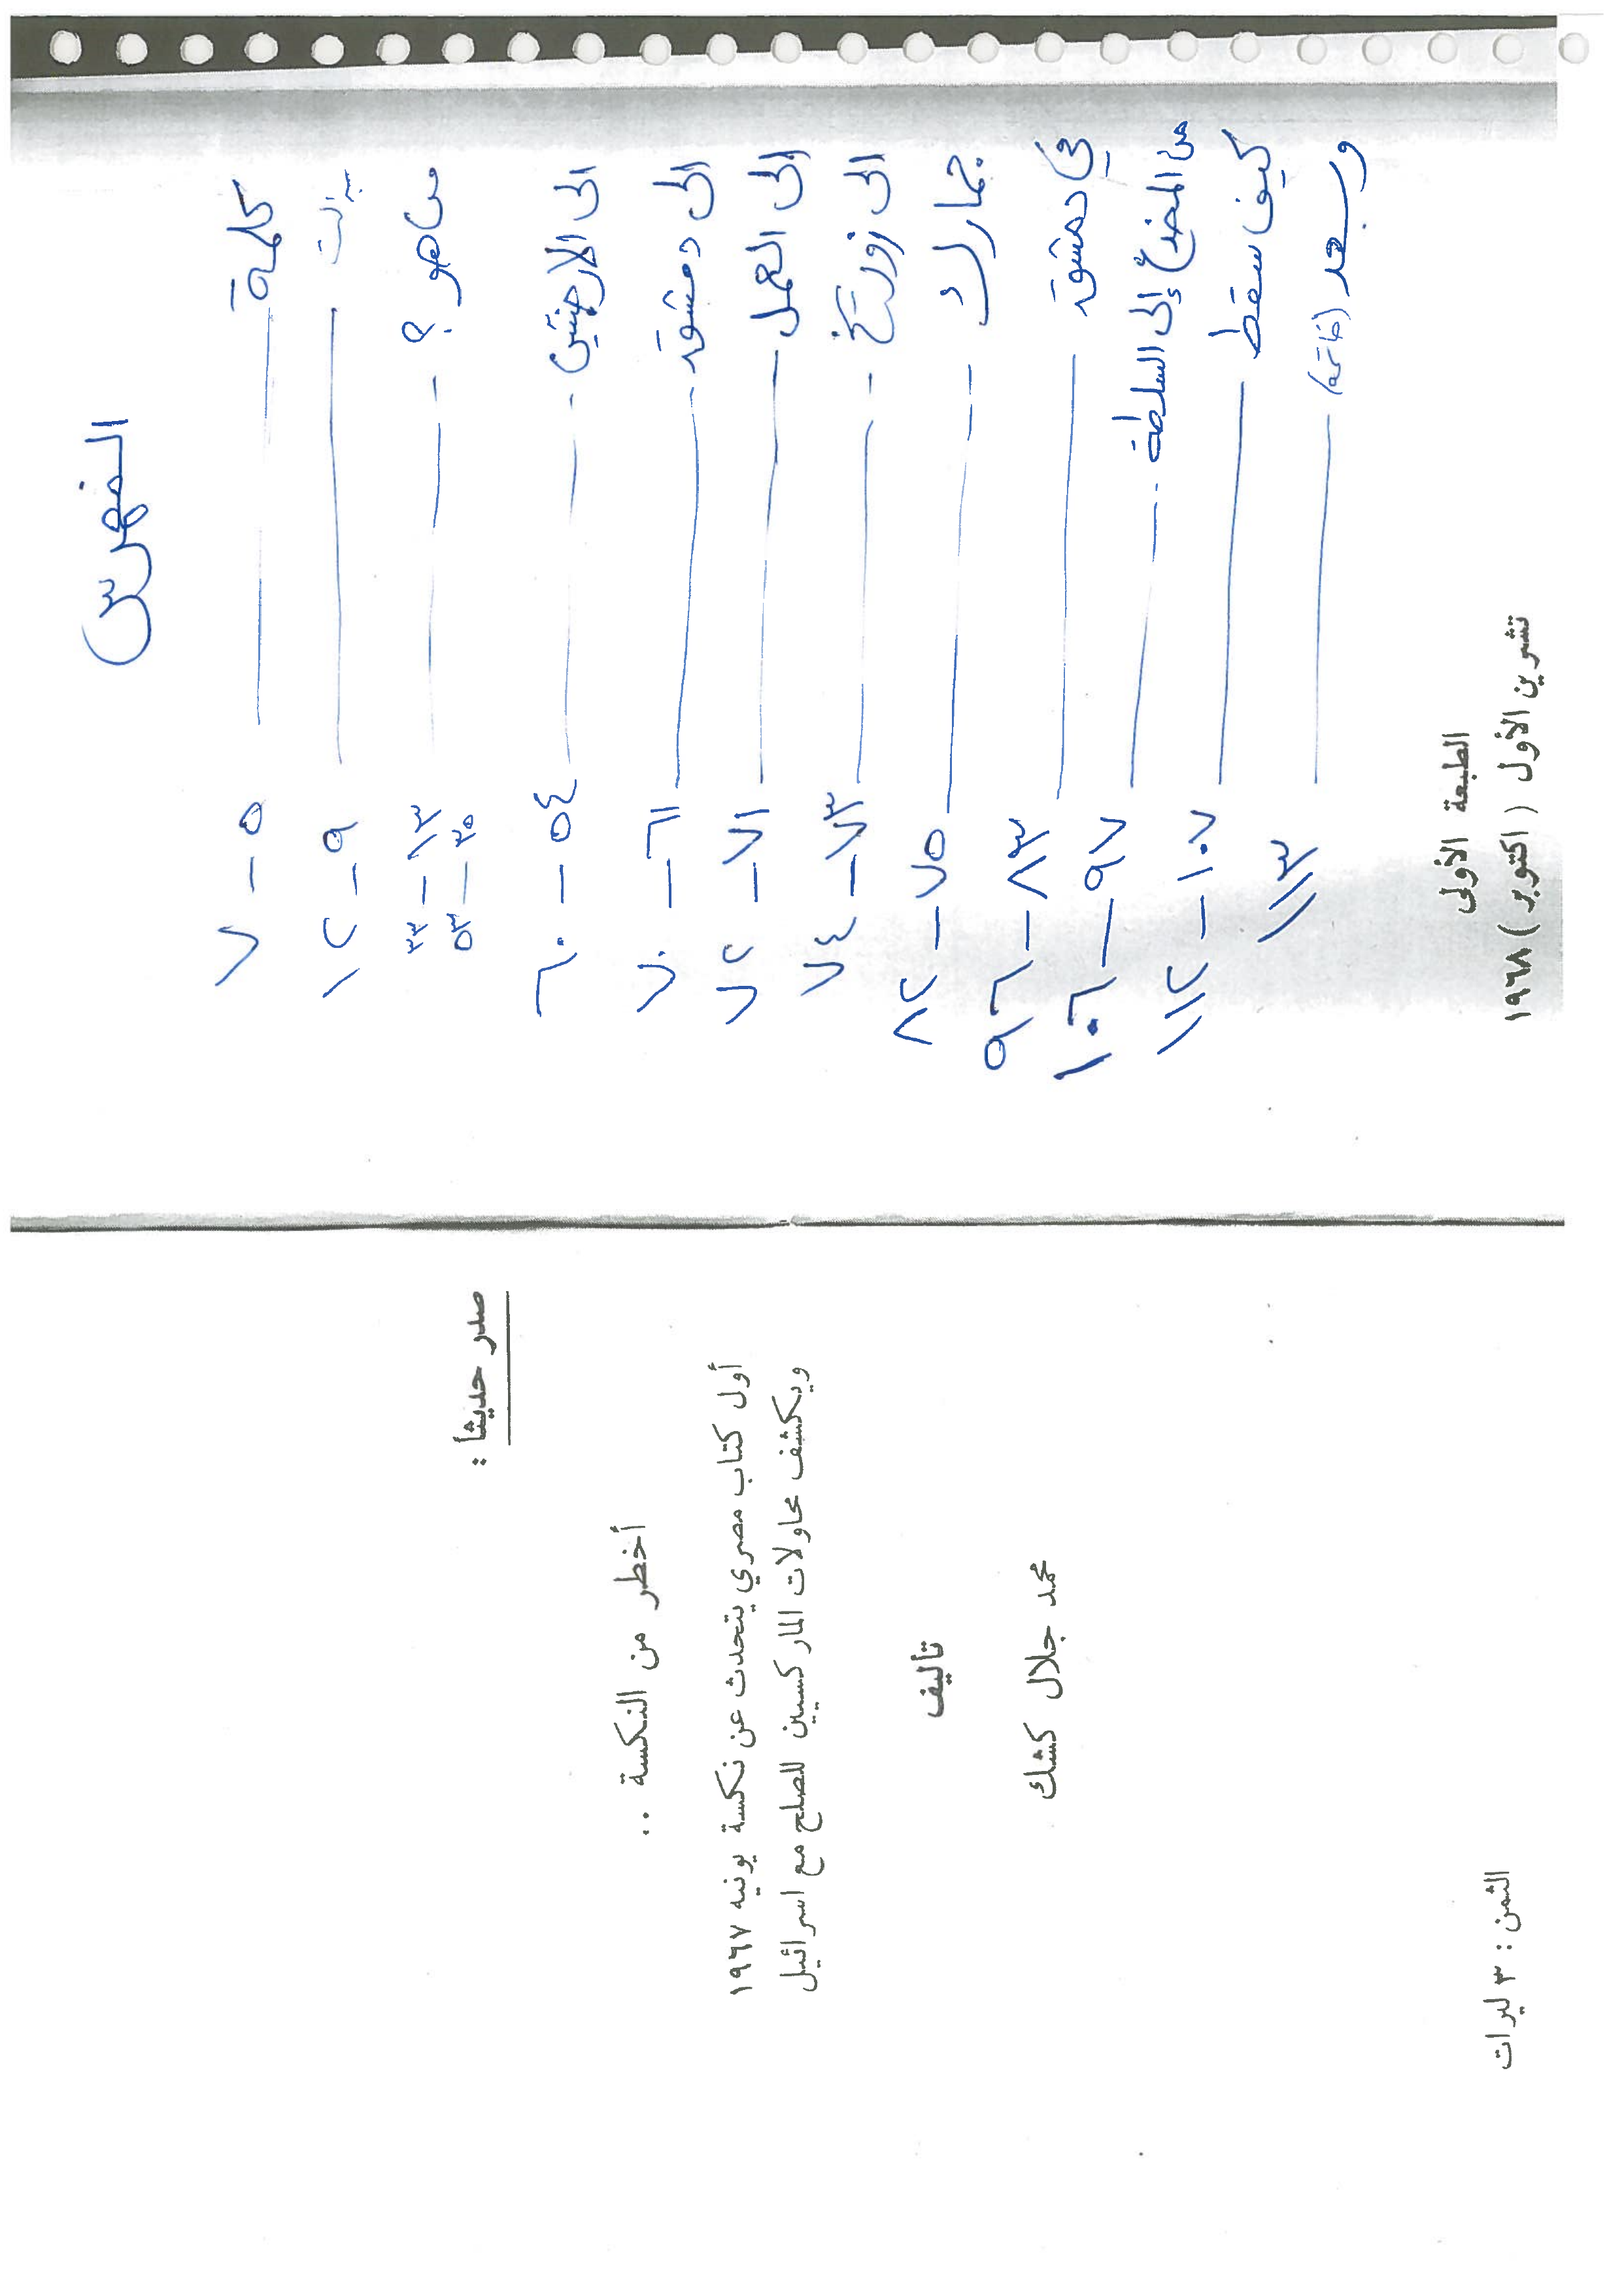 الفهرس
كلمة ــــ ٥ - ٧
ــــ ٩ - ١٢
من هو ؟ ــــ ١٣ - ٣٣
٣٥ - ٥٣
الى الارجنتين ــــ ٥٤ - ٦٠
الى دمشق ــــ ٦١ - ٧٠
إلى العمل ــــ ٧١ - ٧٢
الى زوريخ ــــ ٧٣ - ٧٤
جمارك ــــ ٧٥ - ٨٢
في دمشق ــــ ٨٣ - ٩٦
من المخدع إلى السلطة ــــ ٩٧ - ١٠٦
كيف سقط ــــ ١٠٧ - ١١٢
وبعد (خاتمة) ــــ ١١٣
الطبعة الأولى
تشرين الأول ( اكتوبر ) ١٩٦٨
صدر حديثاً :
أخطر من النكسة ..
أول كتاب مصري يتحدث عن نكسة يونيه ١٩٦٧
ويكشف محاولات الماركسيين للصلح مع اسرائيل
تأليف
محمد جلال كشك
الثمن : ٣ ليرات